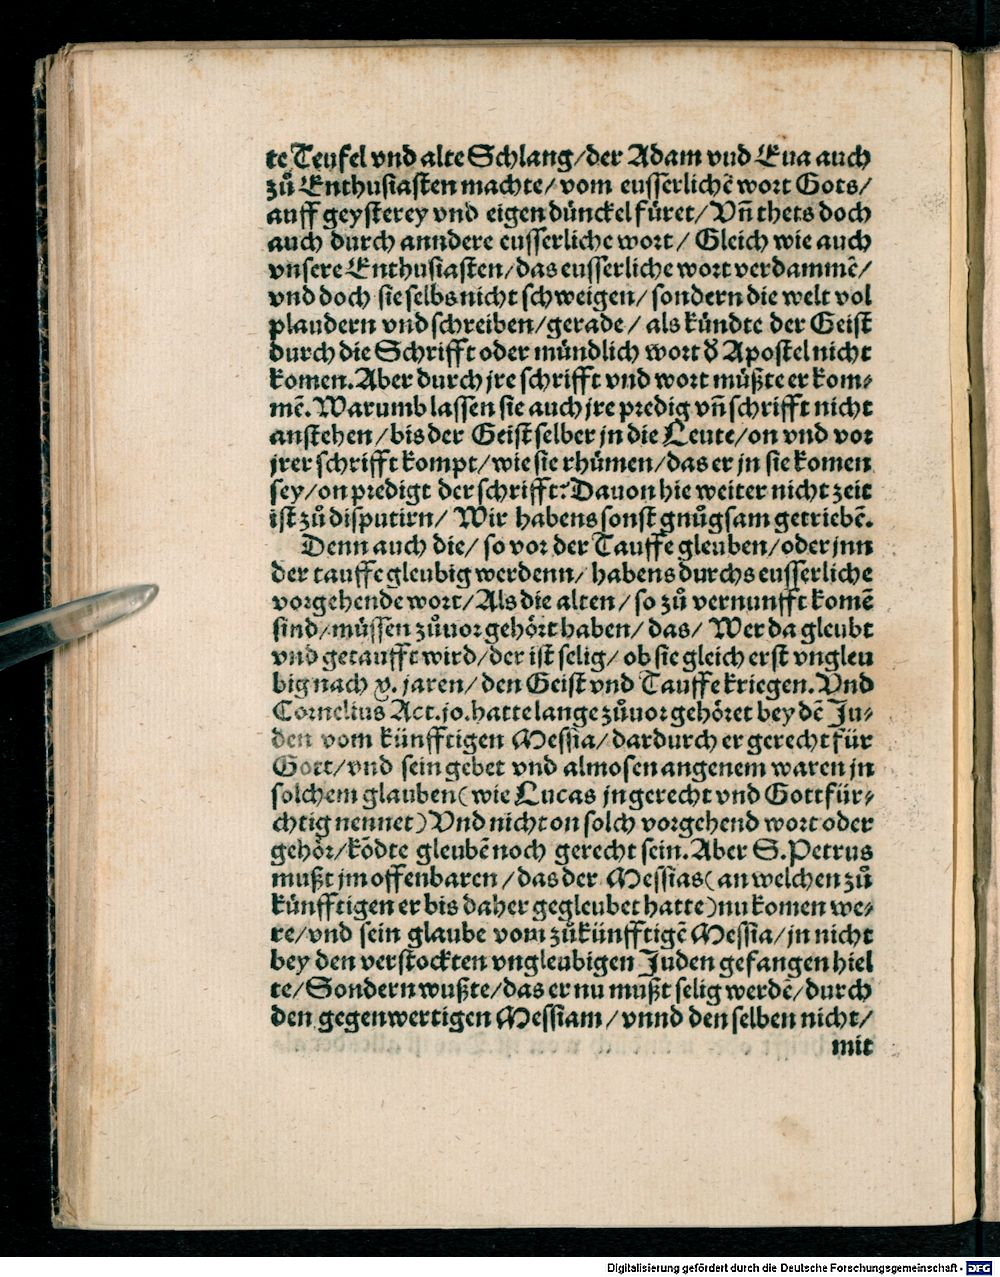 te Teufel vnd alte Schlang/der Adam vnd Eua auch
zů Enthusiasten machte/ vom eusserlichē wort Gots/
auff geysterey vnd eigen dünckel füret/ Vñ thets doch
auch durch anndere eusserliche wort/ Gleich wie auch
vnsere Enthusiasten/das eusserliche wort verdammē/
vnd doch sie selbs nicht schweigen/ sondern die welt vol
plaudern vnd schreiben/gerade/ als kündte der Geist
durch die Schrifft oder mündlich wort ð Apostel nicht
komen. Aber durch jre schrifft vnd wort müßte er kom⸗
mē. Warumb lassen sie auch jre predig vñ schrifft nicht
anstehen/bis der Geist selber jn die Leute/on vnd vor
jrer schrifft kompt/wie sie rhümen/das er jn sie komen
sey/on predigt der schrifft? Dauon hie weiter nicht zeit
ist zů disputirn/ Wir habens sonst gnůgsam getriebē.
Denn auch die/ so vor der Tauffe gleuben/oder jnn
der tauffe gleubig werdenn/ habens durchs eusserliche
vorgehende wort/Als die alten/ so zů vernunfft komē
sind/müssen zůuor gehört haben/ das/ Wer da gleubt
vnd getaufft wird/der ist selig/ ob sie gleich erst vngleu
big nach x. jaren/ den Geist vnd Tauffe kriegen. Vnd
Cornelius Act. jo. hatte lange zůuor gehöret bey dē Ju⸗
den vom künfftigen Messia/dardurch er gerecht für
Gott/vnd sein gebet vnd almosen angenem waren jn
solchem glauben(wie Lucas jn gerecht vnd Gottfür⸗
chtig nennet) Vnd nicht on solch vorgehend wort oder
gehör/kōdte gleubē noch gerecht sein. Aber S. Petrus
mußt jm offenbaren/das der Messias(an welchen zů
künfftigen er bis daher gegleubet hatte)nu komen we⸗
re/vnd sein glaube vom zůkünfftigē Messia/jn nicht
bey den verstockten vngleubigen Juden gefangen hiel
te/Sondern wußte/das er nu mußt selig werdē/durch
den gegenwertigen Messiam/vnnd den selben nicht/
mit
Digitalisierung gefördert durch die Deutsche Forschungsgemeinschaft - DFG